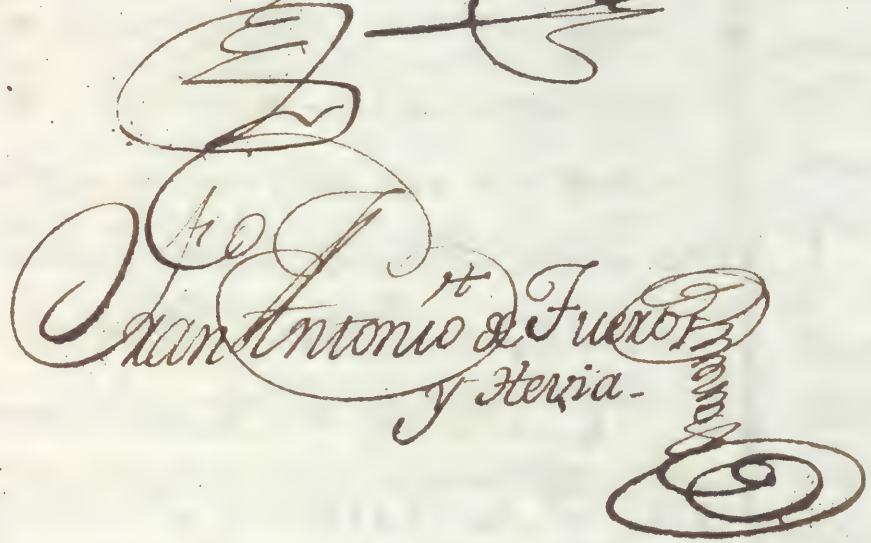 Juan Antonio de Fueros
y Hevia